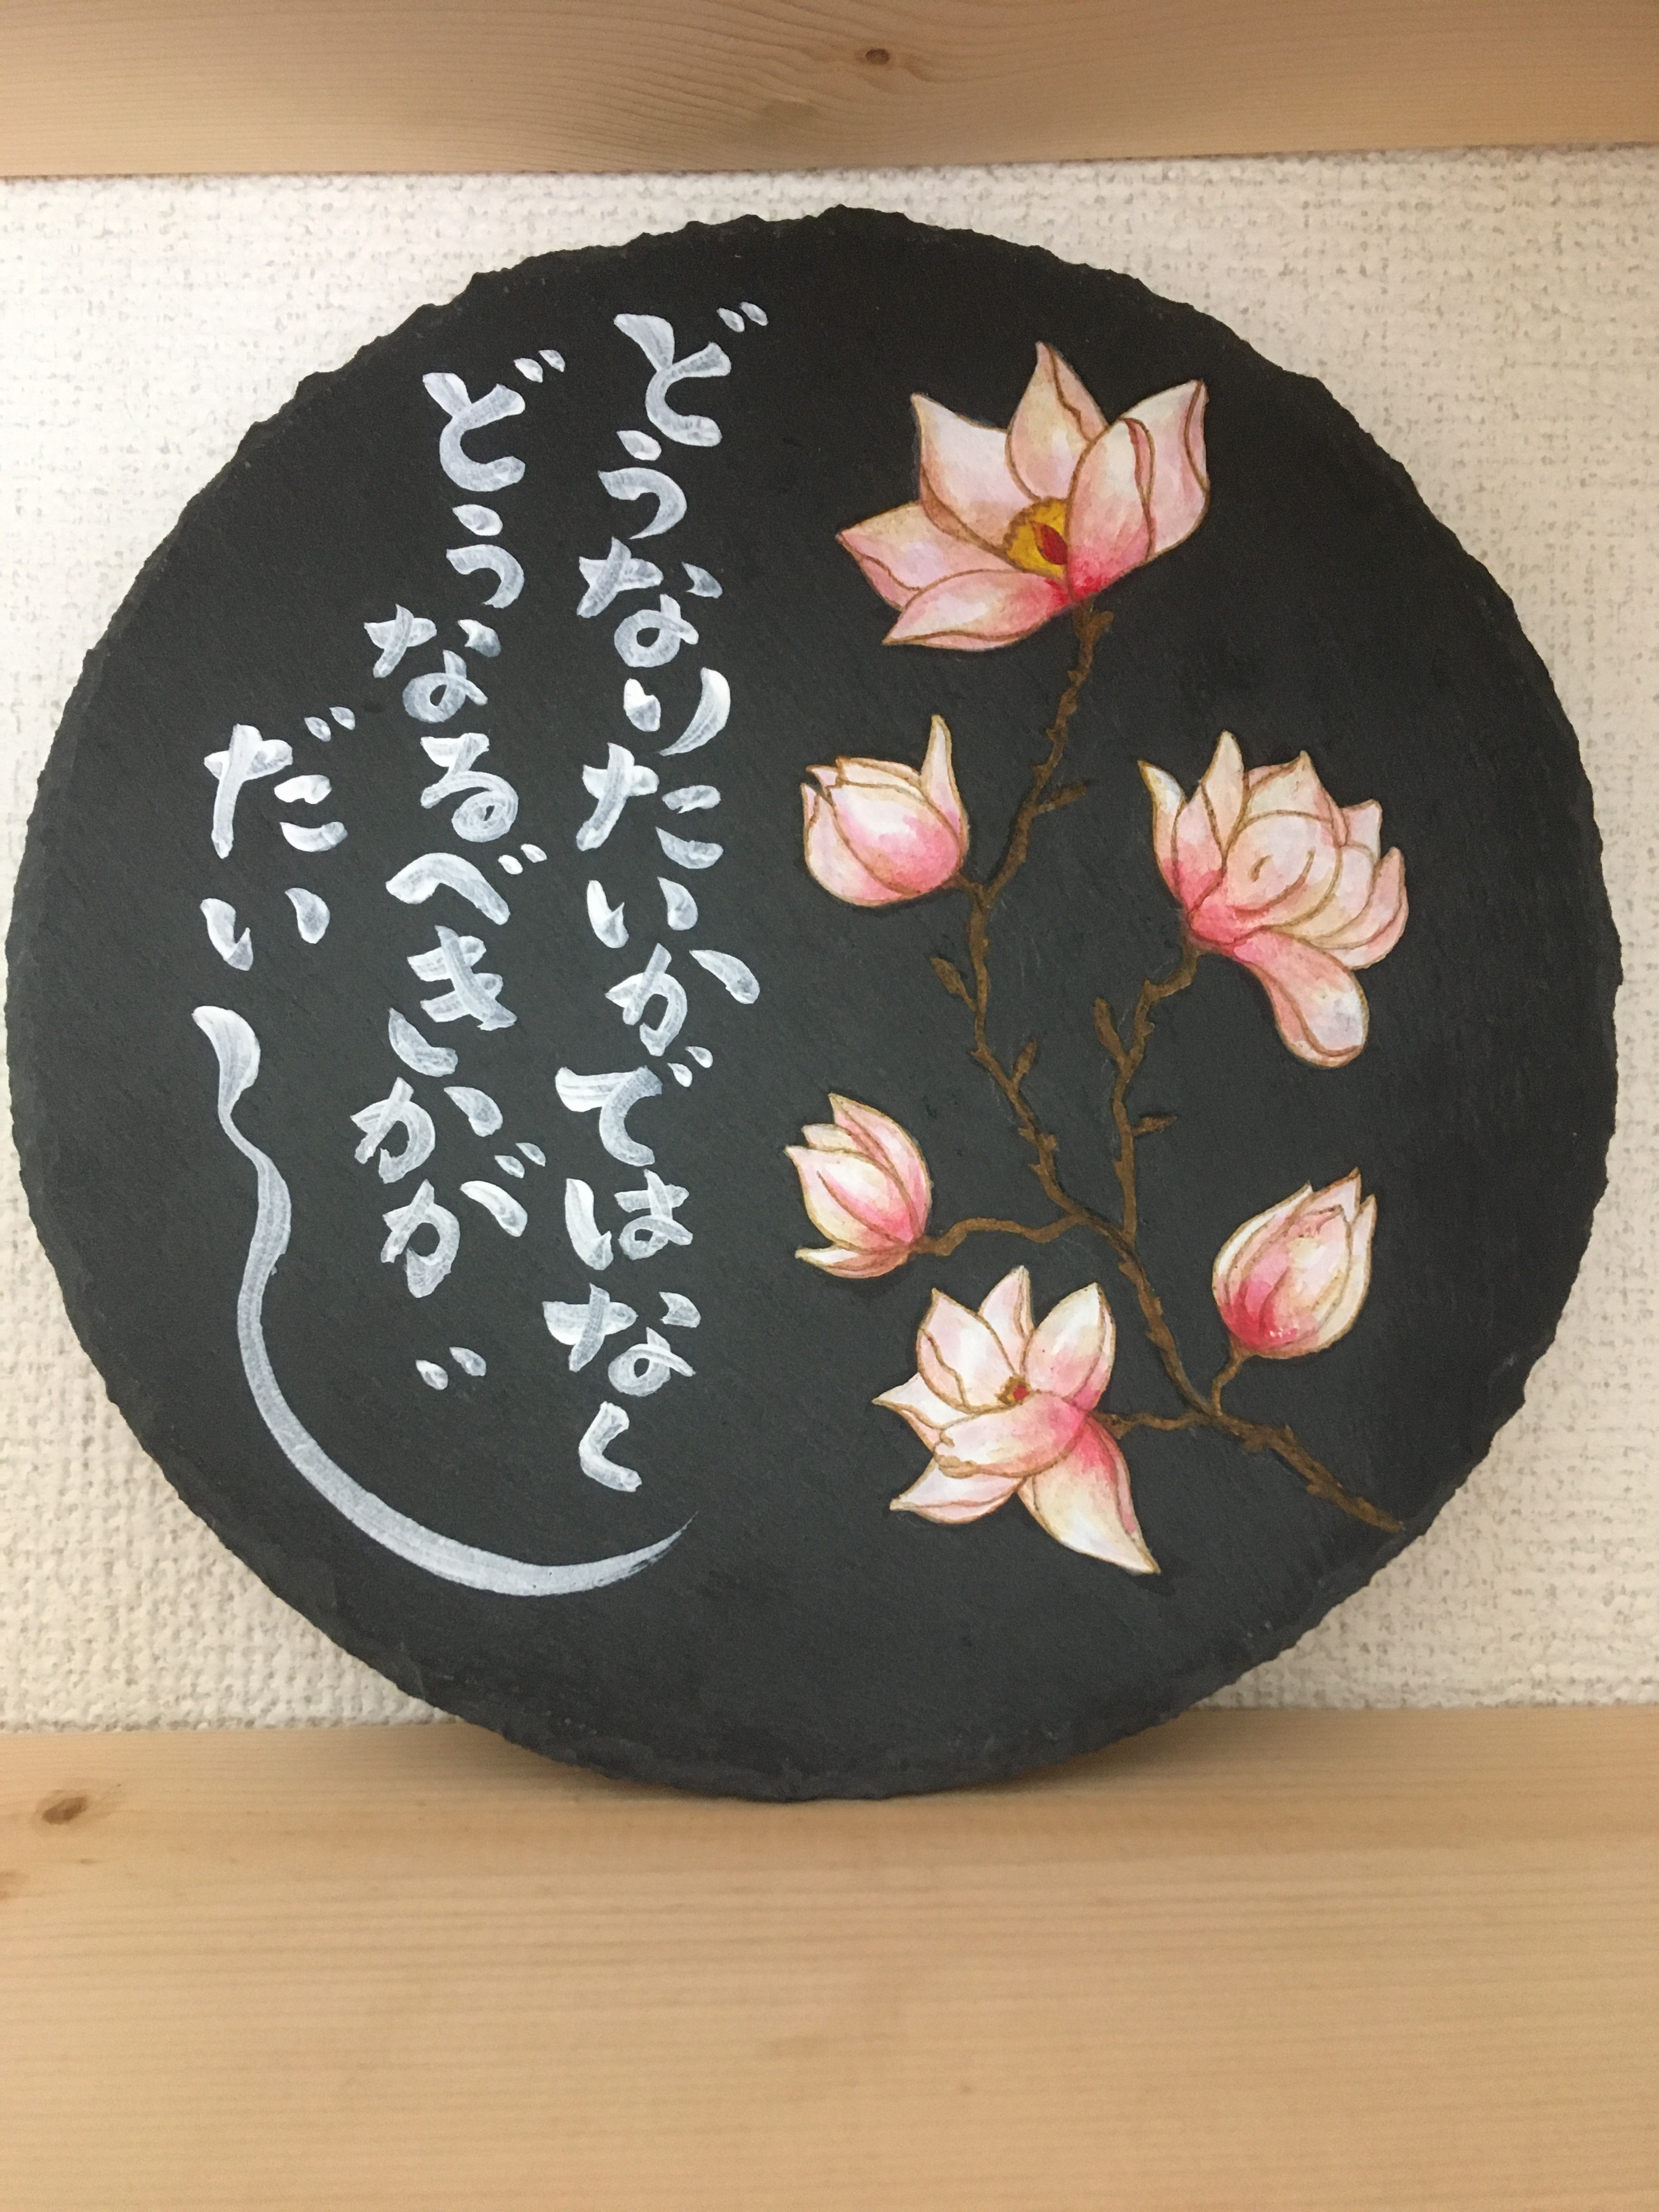 どうなりたいかではなく
どうなるべきかが
だいじ